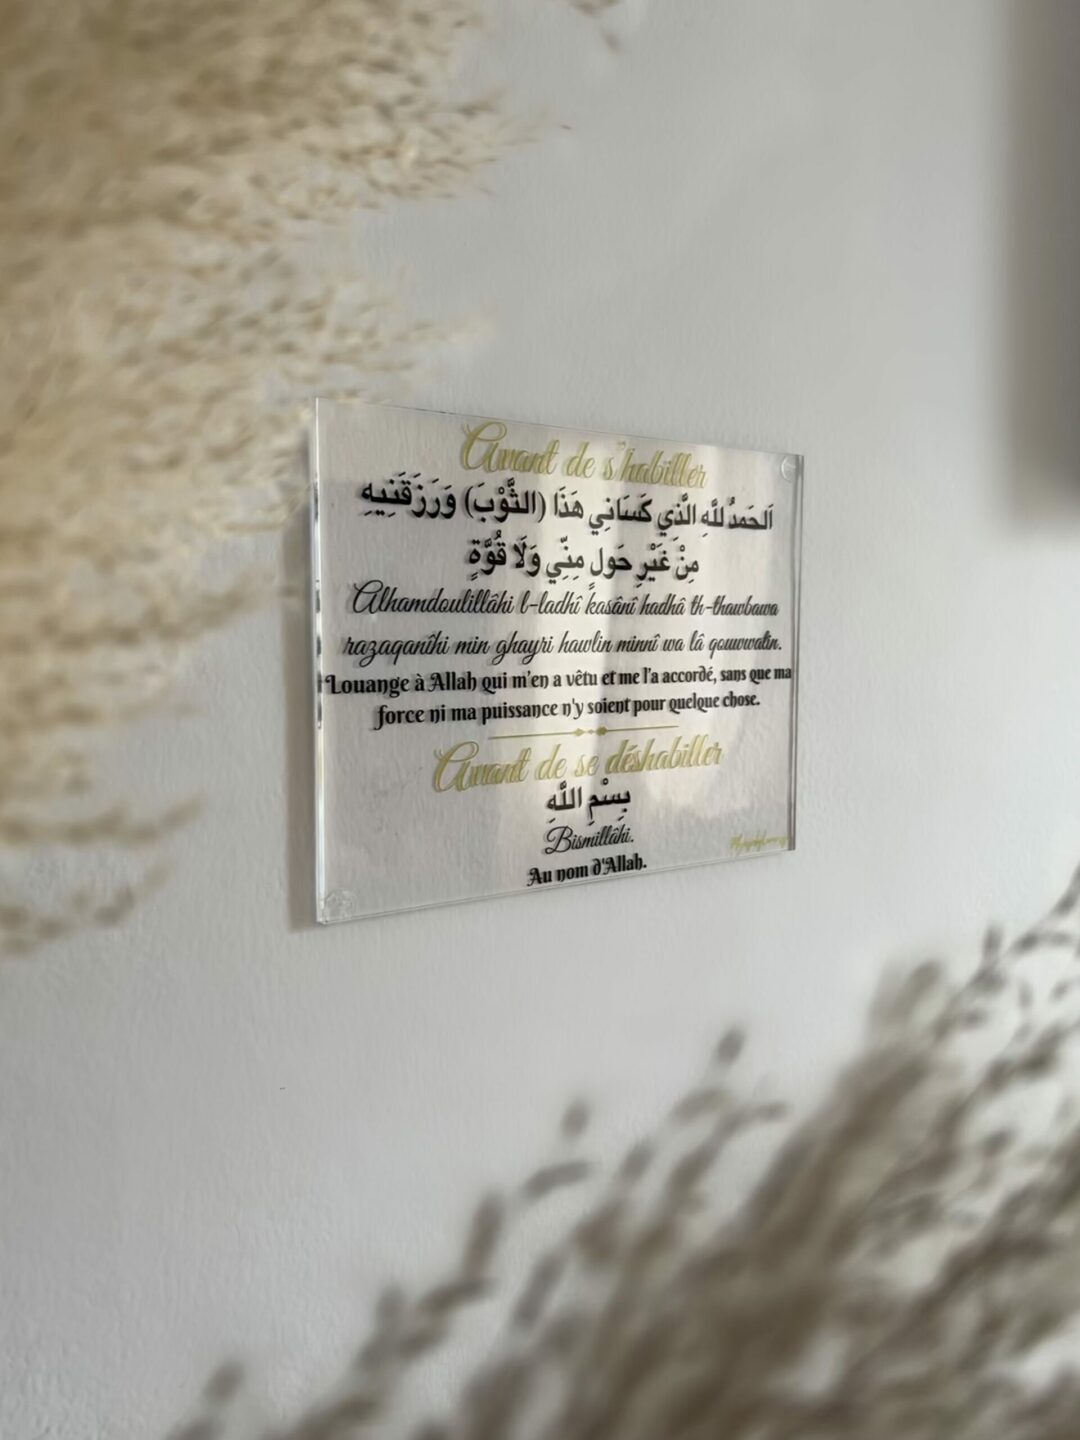 Avant de s'habiller
اَلحَمدُ للَّهِ الَّذِي كَسَانِي هَذَا (الثَّوْبَ) وَرَزَقَنِيهِ
مِنْ غَيْرِ حَولٍ مِنِّي وَلَا قُوَّةٍ
Alhamdoulillâhi l-ladhî kasânî hadhâ th-thawbawa
razaqanîhi min ghayri hawlin minnî wa lâ qouwwatin.
Louange à Allah qui m'en a vêtu et me l'a accordé, sans que ma
force ni ma puissance n'y soient pour quelque chose.
Avant de se déshabiller
بِسْمِ اللَّهِ
Bismillâhi.
Au nom d'Allah.